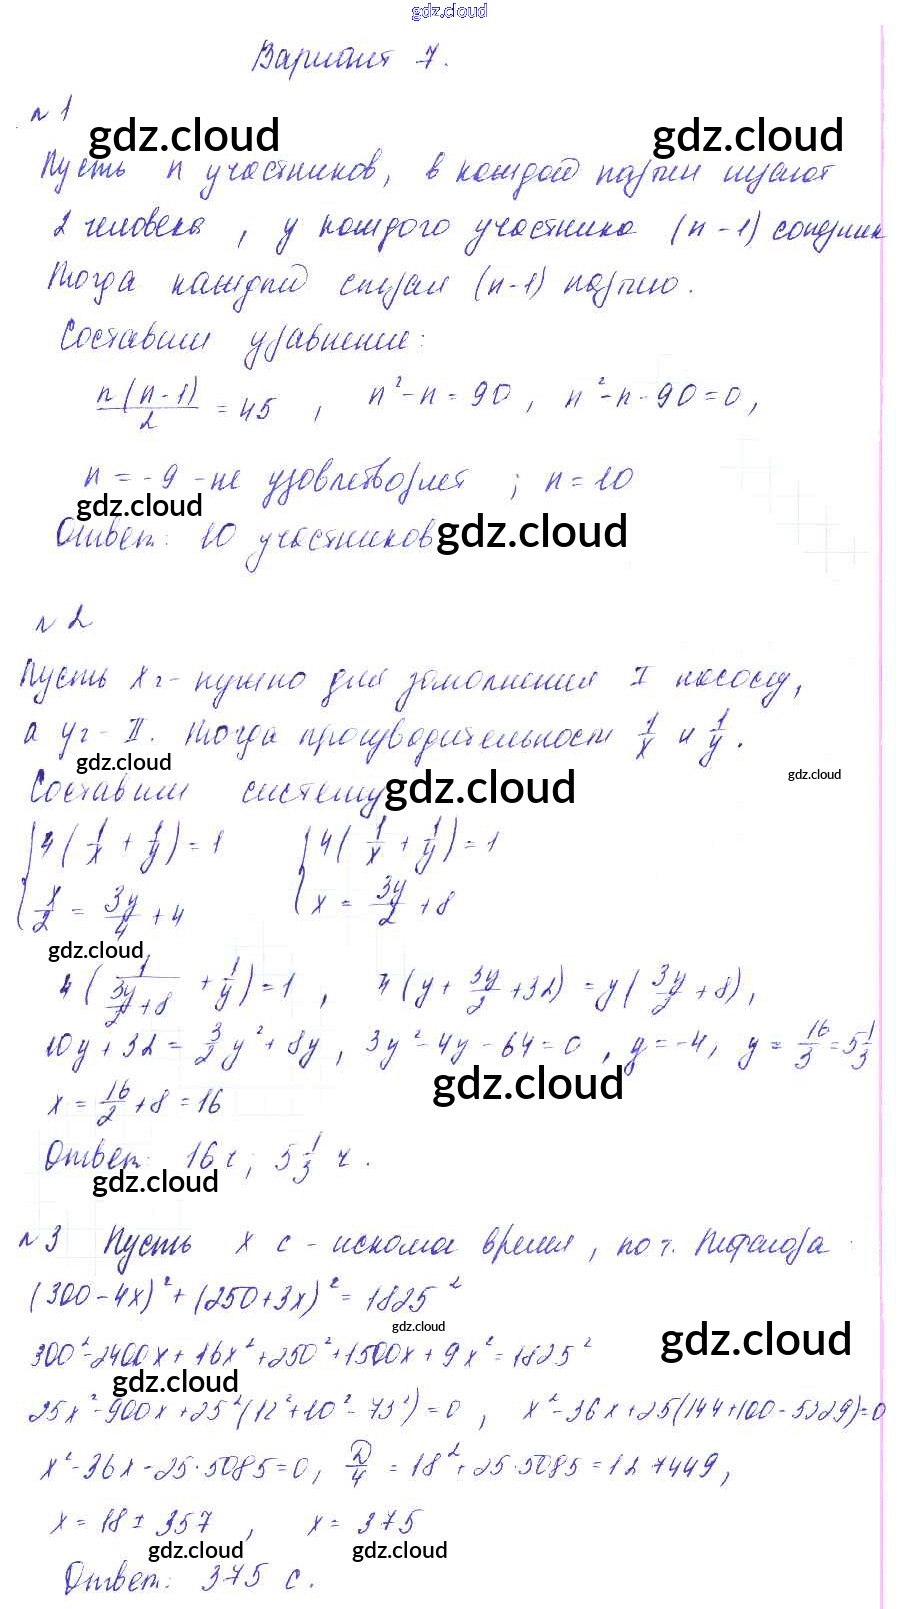 gdz.cloud
Вариант 7.
n 1
gdz.cloud gdz.cloud
Пусть n участников, в каждой партии играют
2 человека, у каждого участника (n - 1) соперник
Тогда каждый сыграл (n-1) партию.
Составим уравнение:
n(n-1)/2 = 45, n² - n = 90, n² - n - 90 = 0,
n = -9 - не удовлетворяет; n = 10
gdz.cloud
Ответ: 10 участников
gdz.cloud
n 2
Пусть x ч - нужно для заполнения I насосу,
а y ч - II. Тогда производительность 1/x и 1/y.
gdz.cloud gdz.cloud
Составим систему
gdz.cloud
{4(1/x + 1/y) = 1 {4(1/x + 1/y) = 1
x/2 = 3y/4 + 4 x = 3y/2 + 8
gdz.cloud
4(1/(3y/2 + 8) + 1/y) = 1, 4(y + 3y/2 + 32) = y(3y/2 + 8),
10y + 32 = 3/2 y² + 8y, 3y² - 4y - 64 = 0, y = -4, y = 16/3 = 5 1/3
gdz.cloud
x = 16/2 + 8 = 16
Ответ: 16 ч; 5 1/3 ч.
gdz.cloud
n 3 Пусть x с - искомое время, по т. Пифагора
(300 - 4x)² + (250 + 3x)² = 1825²
gdz.cloud gdz.cloud
300² - 2400x + 16x² + 250² + 1500x + 9x² = 1825²
gdz.cloud
25x² - 900x + 25²(12² + 10² - 73²) = 0, x² - 36x + 25(144 + 100 - 5329) = 0
x² - 36x - 25·5085 = 0, D/4 = 18² + 25·5085 = 127449,
x = 18 ± 357, x = 375
gdz.cloud gdz.cloud
Ответ: 375 с.